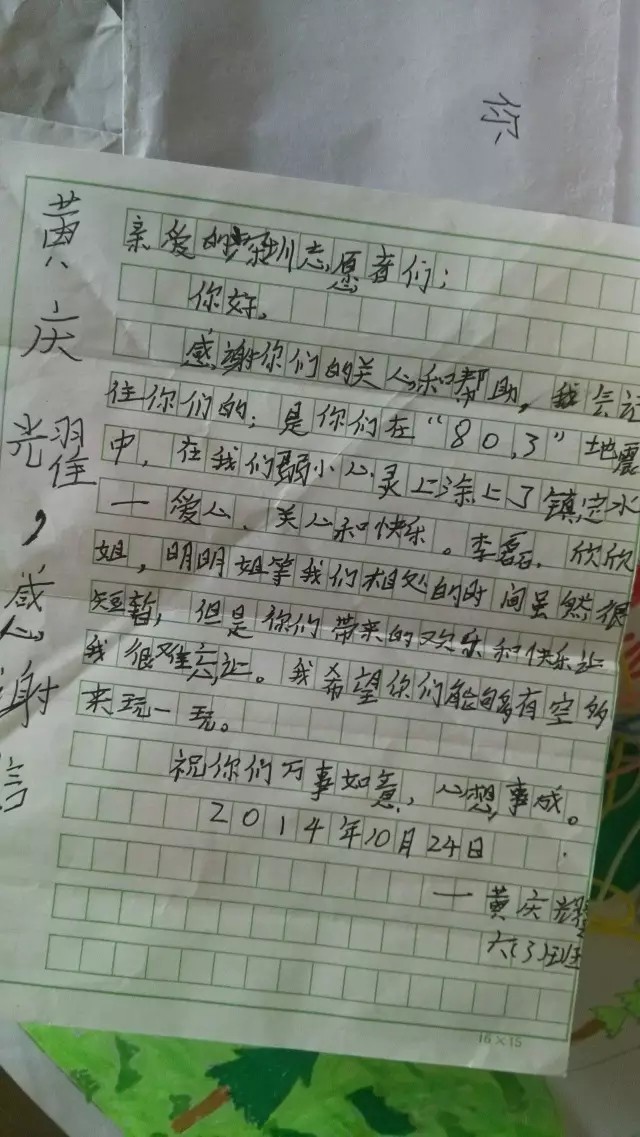 你
黄庆耀,感谢信
亲爱的深圳志愿者们:
你好。
感谢你们的关心和帮助,我会记
住你们的;是你们在“80.3”地震
中,在我们弱小心灵上涂上了镇定水
—爱心、关心和快乐。李磊、欣欣
姐,明明姐等我们相处的时间虽然很
短暂,但是你们带来的欢乐和快乐让
我很难忘让。我希望你们能够有空的
来玩一玩。
祝你们万事如意,心想事成。
2014年10月24日
—黄庆耀
六(3)班
16×15